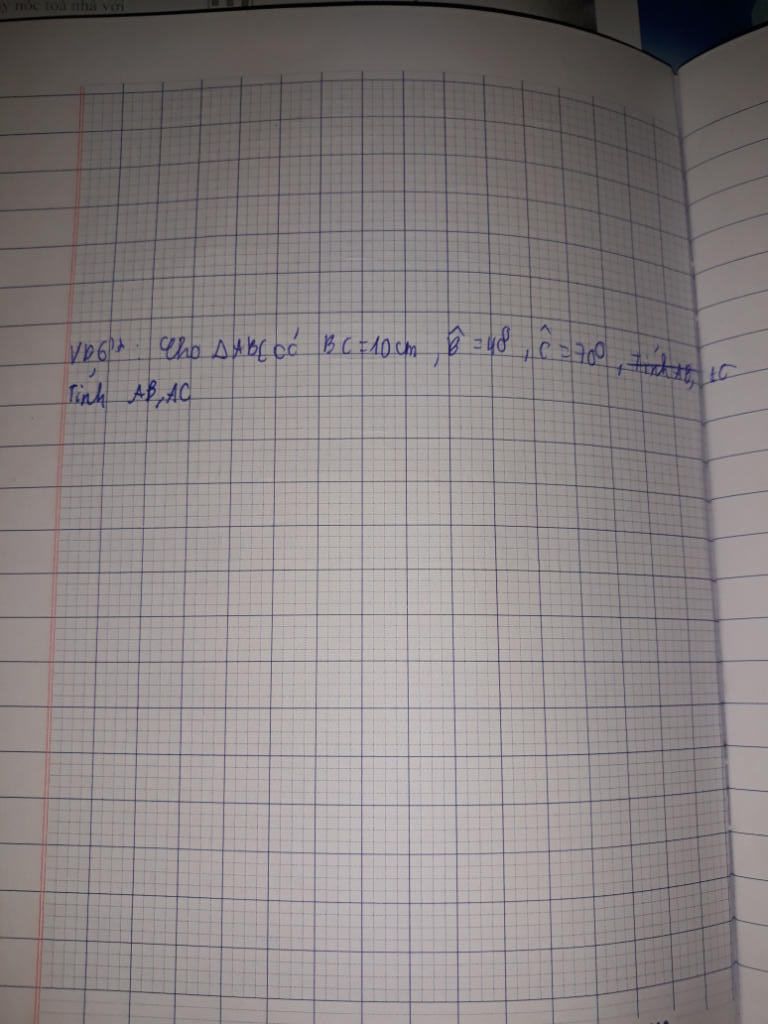 y nóc toà nhà với
VD6: Cho ΔABC có BC=10cm, B̂=48, Ĉ=70°, Tính AB, AC
Tính AB, AC